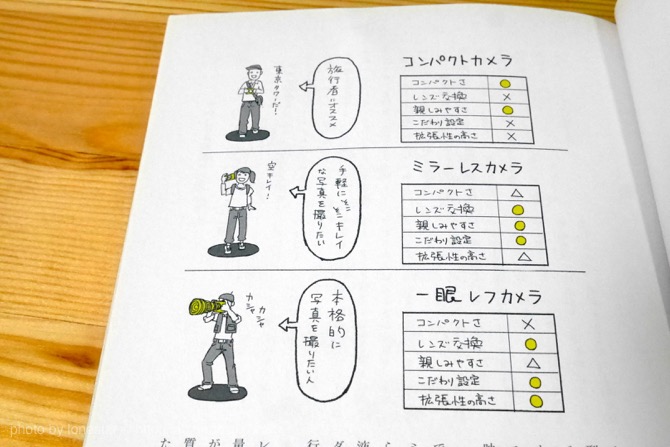 コンパクトカメラ
東京タワーだ!
旅行者にオススメ
コンパクトさ ●
レンズ交換 ×
親しみやすさ ●
こだわり設定 ×
拡張性の高さ ×
ミラーレスカメラ
空キレイ!
手軽にそこそこキレイ
な写真を撮りたい
コンパクトさ △
レンズ交換 ●
親しみやすさ ●
こだわり設定 ●
拡張性の高さ △
一眼レフカメラ
カシャ
カシャ
本格的に
写真を撮りたい人
コンパクトさ ×
レンズ交換 ●
親しみやすさ △
こだわり設定 ●
拡張性の高さ ●
photo by